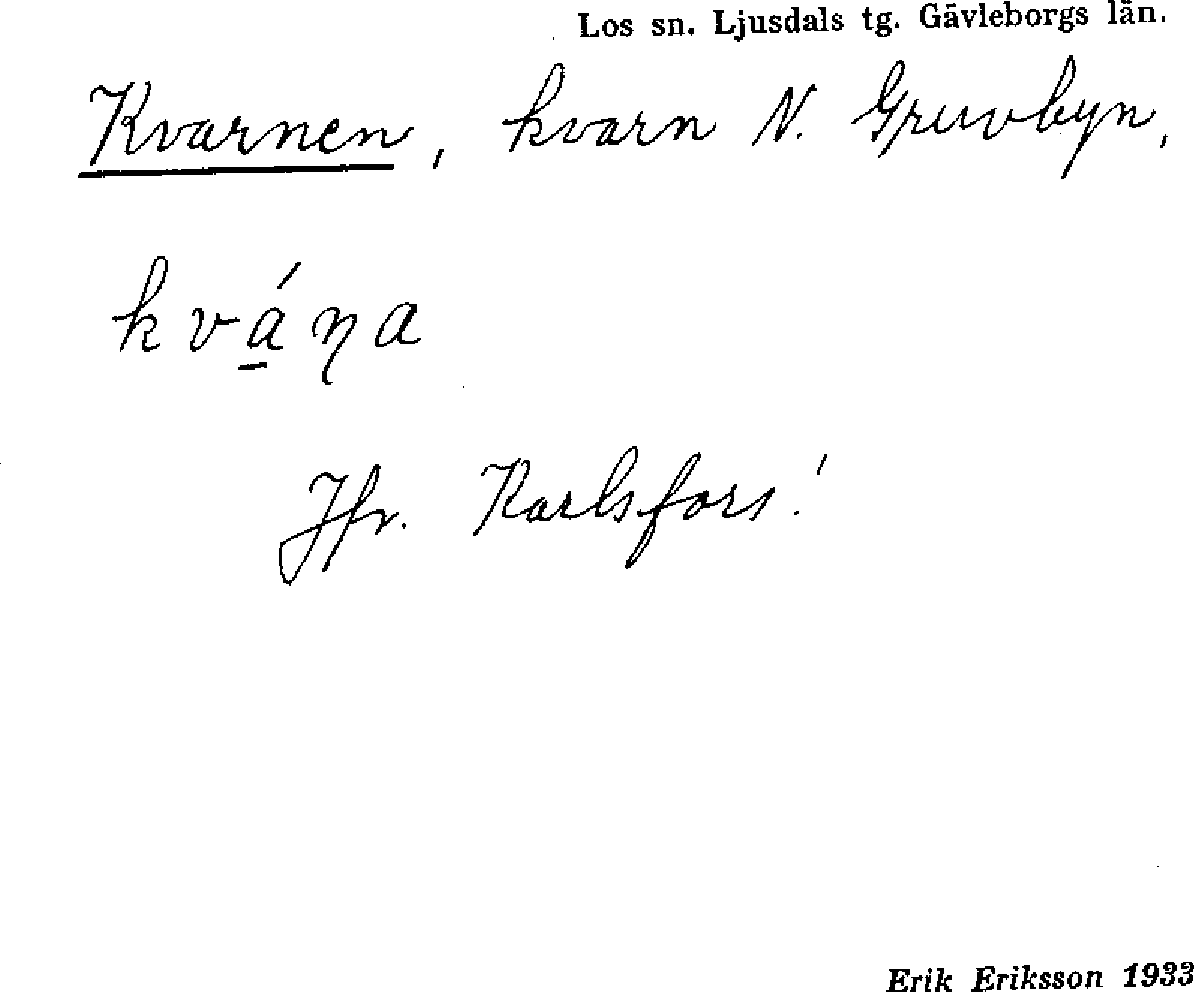 Los sn. Ljusdals tg. Gävleborgs län.
Kvarnen, kvarn N. Gruvbyn,
kvá̱ŋa
Jfr. Karlsfors!
Erik Eriksson 1933